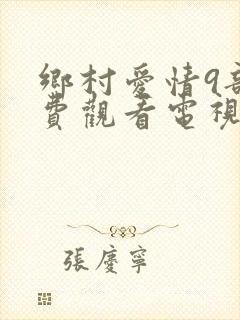 鄉村愛情9部
費觀看電視
張慶寧